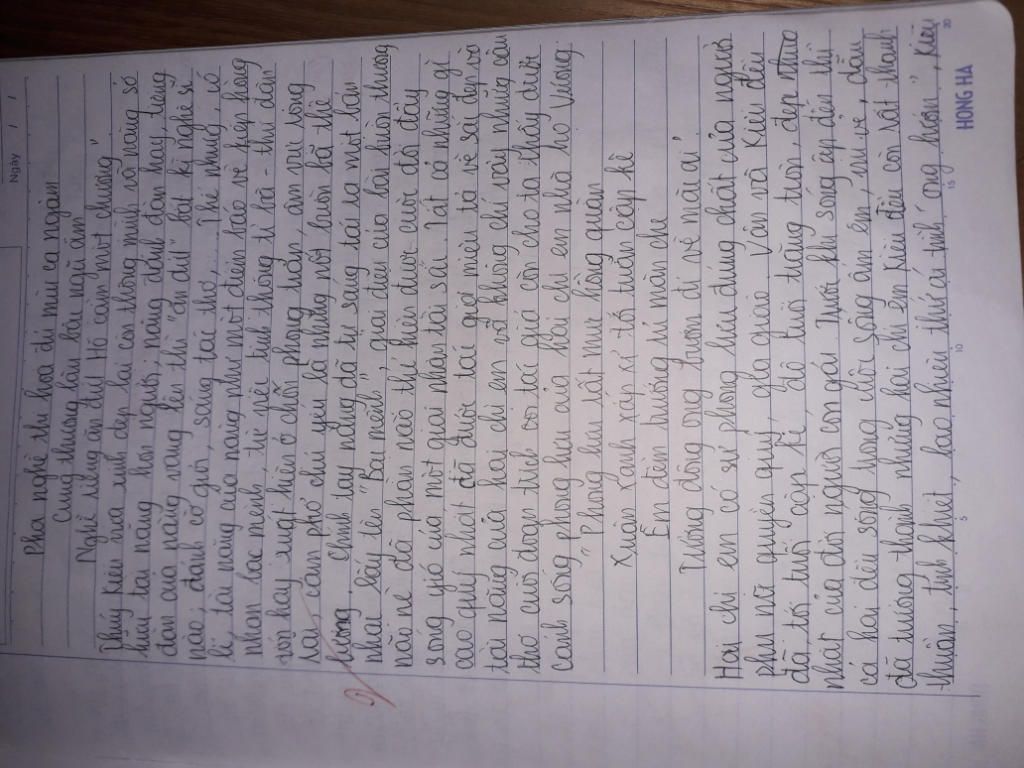 Ngày / /
Pha nghề thi hoạ đủ mùi ca ngâm
Cung thương làu bậc ngũ âm
Nghề riêng ăn đứt Hồ cầm một chương"
Thuý Kiều vừa xinh đẹp lại còn thông minh với nàng số
hữu tài năng hơn người, nàng đánh đàn hay, tiếng
đàn của nàng vang lên thì "ăn đứt" bất kỳ nghệ sĩ
nào, đánh cờ giỏi, sáng tác thơ, Thế nhưng, có
lẽ tài năng của nàng như một điềm báo về kiếp hồng
nhan bạc mệnh, thế nếu tinh thông tì bà - thứ đàn
vốn hay xuất hiện ở chốn phong trần, âm vực vòng
vài, căn phổ chủ yếu là những nốt buồn bã thê
lương, chính tay nàng đã tự sáng tác ra một bản
nhạc lấy tên "Bạc mệnh", giai điệu của bài buồn thương
não nề đã phần nào thể hiện được cuộc đời đầy
sóng gió của một giai nhân tài sắc. Tất cả những gì
cao quý nhất đã được tác giả miêu tả về sắc đẹp và
tài năng của hai chị em vỡ không chỉ vậy những câu
thơ cuối đoạn trích tác giả còn cho ta thấy được
cảnh sống phong lưu của hai chị em nhà họ Vương:
"Phong lưu rất mực hồng quần
Xuân xanh xấp xỉ tới tuần cập kê
Êm đềm trướng rủ màn che
Tường đông ong bướm đi về mặc ai"
Hai chị em có sự phong lưu đúng chất của người
phụ nữ quyền quý, gia giáo. Vân và Kiều đều
đã tới tuổi cập kê, độ tuổi trăng tròn, đẹp nhất
nhất của đời người con gái. Trước khi sóng ập đến thì
cả hai đều sống trong cuộc sống ấm êm, vui vẻ, dẫu
đã trưởng thành nhưng hai chị em Kiều đều còn rất thanh
thuần, tinh khiết, bao nhiêu thứ ái tình "ong bướm", Kiều
5 10 15 20
HONG HA